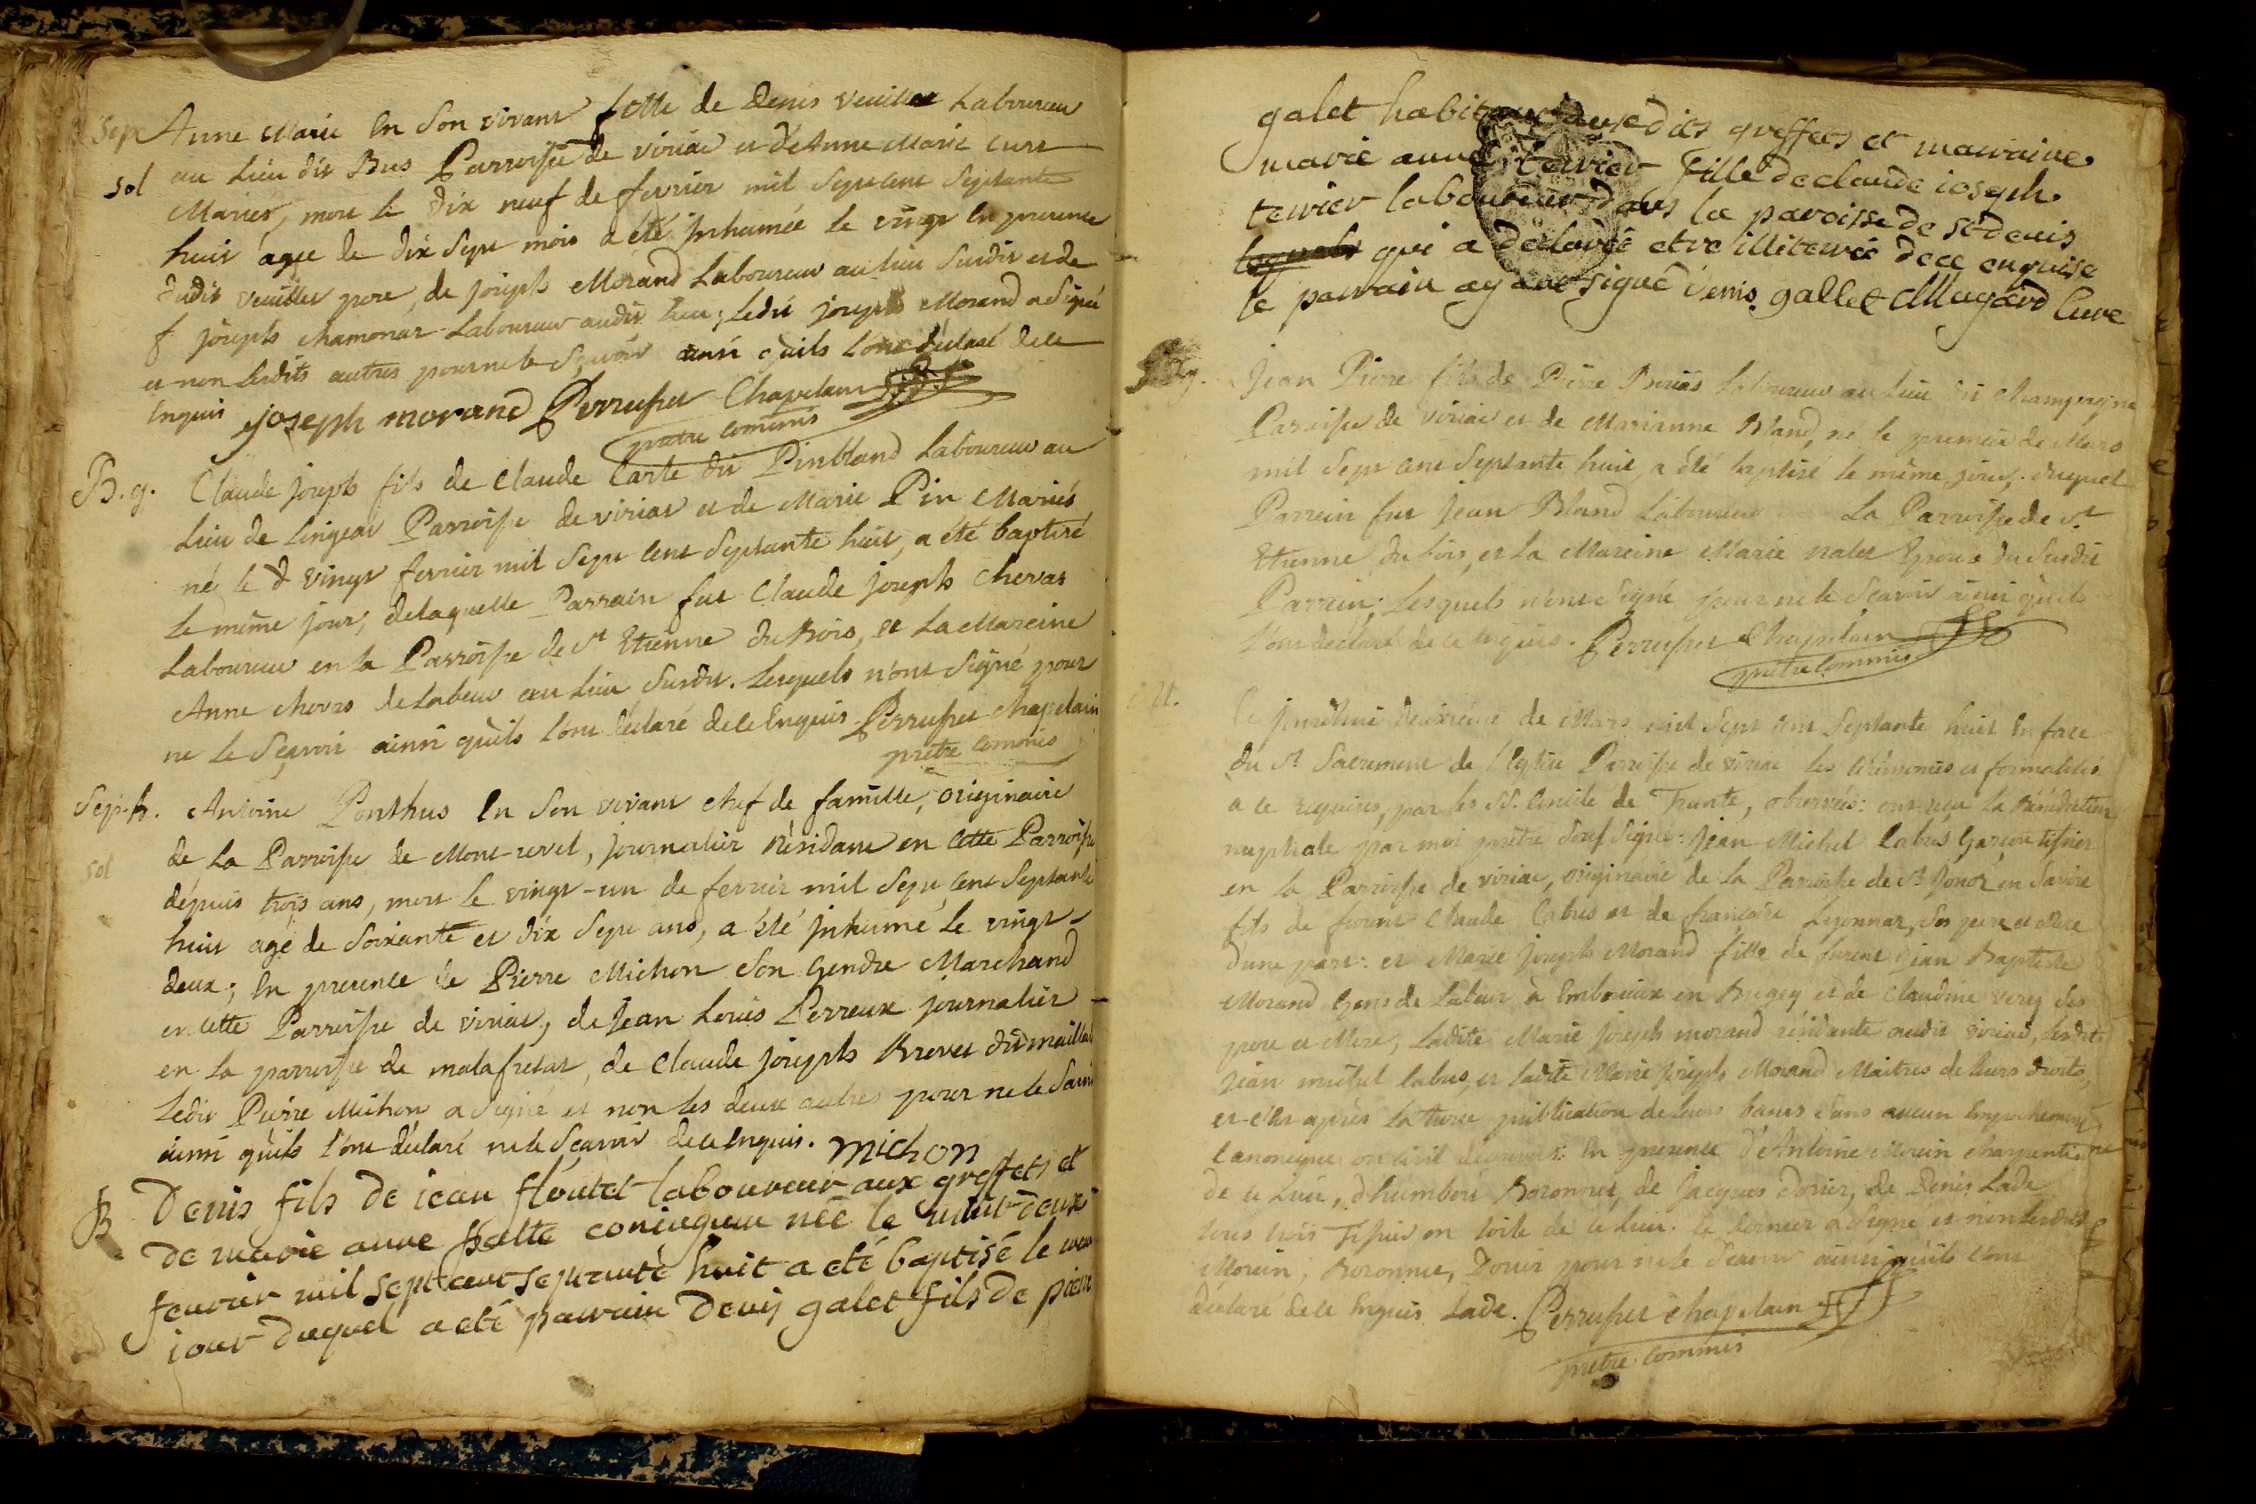 Sep Anne Marie En Son vivant fille de Denis Veuillet Laboureur
sol au Lieu dit Bus Parroisse de viriac et de Anne Marie Curt
Mariés, mort le dix neuf de fevrier mil Sept cent Septante
huit agée de dix Sept mois a été Inhumée le vingt En presence
dudit veuillet pere, de joseph Morand Laboureur au lieu Susdit et de
joseph chamonar Laboureur audit lieu; Ledit joseph Morand a Signé
et non Lesdits autres pour ne le Sçavoir ainsi qu'ils l'ont déclaré de ce
Enquis joseph morand Perrusset Chapelain
prêtre commis
B. g. Claude joseph fils de Claude Carte dit Pinbland Laboureur au
Lieu de Lingeat Parroisse de viriat et de Marie Pin Mariés
né le vingt fevrier mil Sept Cent Septante huit, a été baptisé
le même jour, delaquelle Parrain fut Claude joseph Chevat
Laboureur en la Parroisse de St Etienne du Bois, et La Mareine
Anne de Labeur au Lieu Susdit. Lesquels n'ont Signé pour
ne le Sçavoir ainsi qu'ils l'ont déclaré de ce Enquis Perrusset chapelain
prêtre commis
Sep. h. Antoine Ponthus En Son vivant chef de famille, originaire
sol de La Parroisse de Mont-revel, journalier Résidant en Cette Parroisse
dépuis trois ans, mort le vingt-un de fevrier mil Sept Cent Septante
huit agé de Soixante et dix Sept ans, a été Inhumé le vingt-
deux; En presence de Pierre Michon Son Gendre Marchand
en cette Parroisse de viriat, de Jean Louis Perreux journalier
en La parroisse de malafretat, de Claude joseph Brevet
Ledit Pierre Michon a Signé et non les deux autres pour ne le
ainsi qu'ils l'ont déclaré ne le Scavoir de ce Enquis. Michon
B Denis fils de iean floutet laboureur aux greffets et
de marie anne coniugeau née le vint-deux
feuvrier mil sept cent septante huit a eté baptisé le
iour duquel a eté parrain Denis galet fils de pierre
galet habitant auxdits greffets et marraine
marie anne terrier Fille de claude ioseph
terrier laboureur dans la paroisse de st denis
qui a declarée etre illiterée de ce enquise
le parrain ayant signé Denis gallet Cure
Jean Pierre fils de Pierre Laboureur au Lieu dit Champagne
Parroisse de viriac et de Marianne Bland, né le premier de Mars
mil Sept Cent Septante huit, a été baptisé le même jour, duquel
Parrain fut Jean Bland Laboureur La Parroisse de St
Etienne du bois, et La Mareine Marie nalet Epouse du Susdit
Parrain; Lesquels n'ont Signé pour ne le Sçavoir ainsi qu'ils
l'ont déclaré de ce Enquis. Perrusset Chapelain
prêtre commis
M. jourdhui deuxième de Mars mil Sept Cent Septante huit En face
du St Sacrement de l'Eglise Parroisse de viriac les Cérémonies et formalités
a ce requises, par les SS. Concile de Trente, observées: ont reçu La Bénédiction
nuptiale par moi prêtre Soussigné: Jean Michel Cabus Garçon tissier
en la Parroisse de viriac, originaire de La Parroisse de en Savoie
fils de furent Claude Cabus et de françoise Leyonnat, Ses pere et Mere
d'une part: et Marie Joseph Morand fille de furent Jean Baptiste
Morand Gens de Labeur à en Bugey et de Claudine verey Ses
pere et Mere, Ladite Marie Joseph morand résidante audit viriac, Lesdits
Jean michel Cabus, et ladite Marie Joseph Morand Maitres de leurs droits,
et après La publication de leurs bancs Sans aucun Empêchement
Canonique ou Civil En presence d'Antoine Morin charpentier
de ce Lieu, d'humbert de Jacques Donier, de Denis Lade
tous trois Tissier en toile de ce Lieu. Le dernier a Signé et non Lesdits
Morin, Donier pour ne le Sçavoir ainsi qu'ils l'ont
déclaré de ce Enquis Lade. Perrusset chapelain
prêtre commis